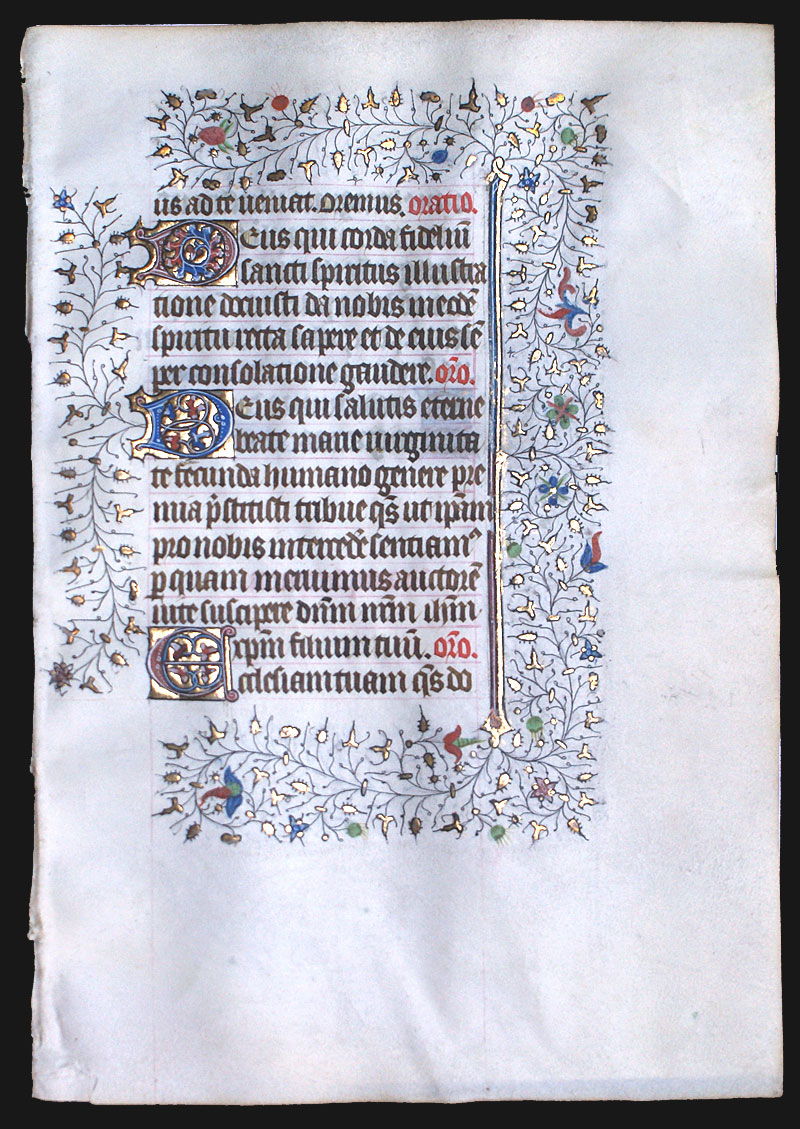 us ad te veniat. Oremus. oratio.
Deus qui corda fideliū
sancti spiritus illustra
tione docuisti da nobis in eodē
spiritu recta sapere et de eius sē
per consolatione gaudere. orō.
Deus qui salutis eterne
beate marie virginita
te fecunda humano generi pre
mia p̄stitisti tribue q̄s ut ipām
pro nobis intercedere sentiamꝰ
ꝑ quam meruimus auctorē
vite suscipere dn̄m nr̄m ih̄m
xp̄m filium tuū. orō.
Ecclesiam tuam q̄s do